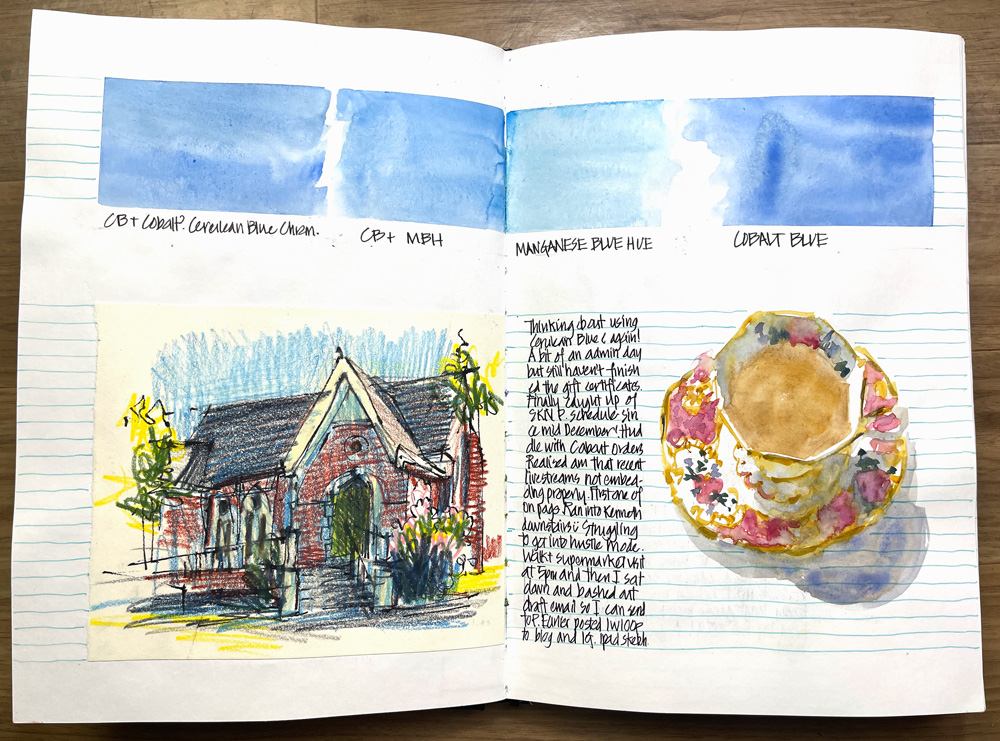 CB + Cobalt? Cerulean Blue Chrom.
CB + MBH
MANGANESE BLUE HUE
COBALT BLUE
Thinking about using
Cerulean Blue C again!
A bit of an admin day
but still haven't finish
ed the gift certificates.
Finally caught up of
SKN P. schedule sin
ce mid December! Hud
dle with Cobalt Orders
Realized am that recent
livestreams not embed-
ding properly. First one of
on page. Ran into Kenneth
downstairs!! Struggling
to get into hustle mode.
Walk + supermarket visit
at 5pm and then I sat
down and bashed out
draft email so I can send
to P. Earlier posted 1W100P
to blog and IG. ipad sketch